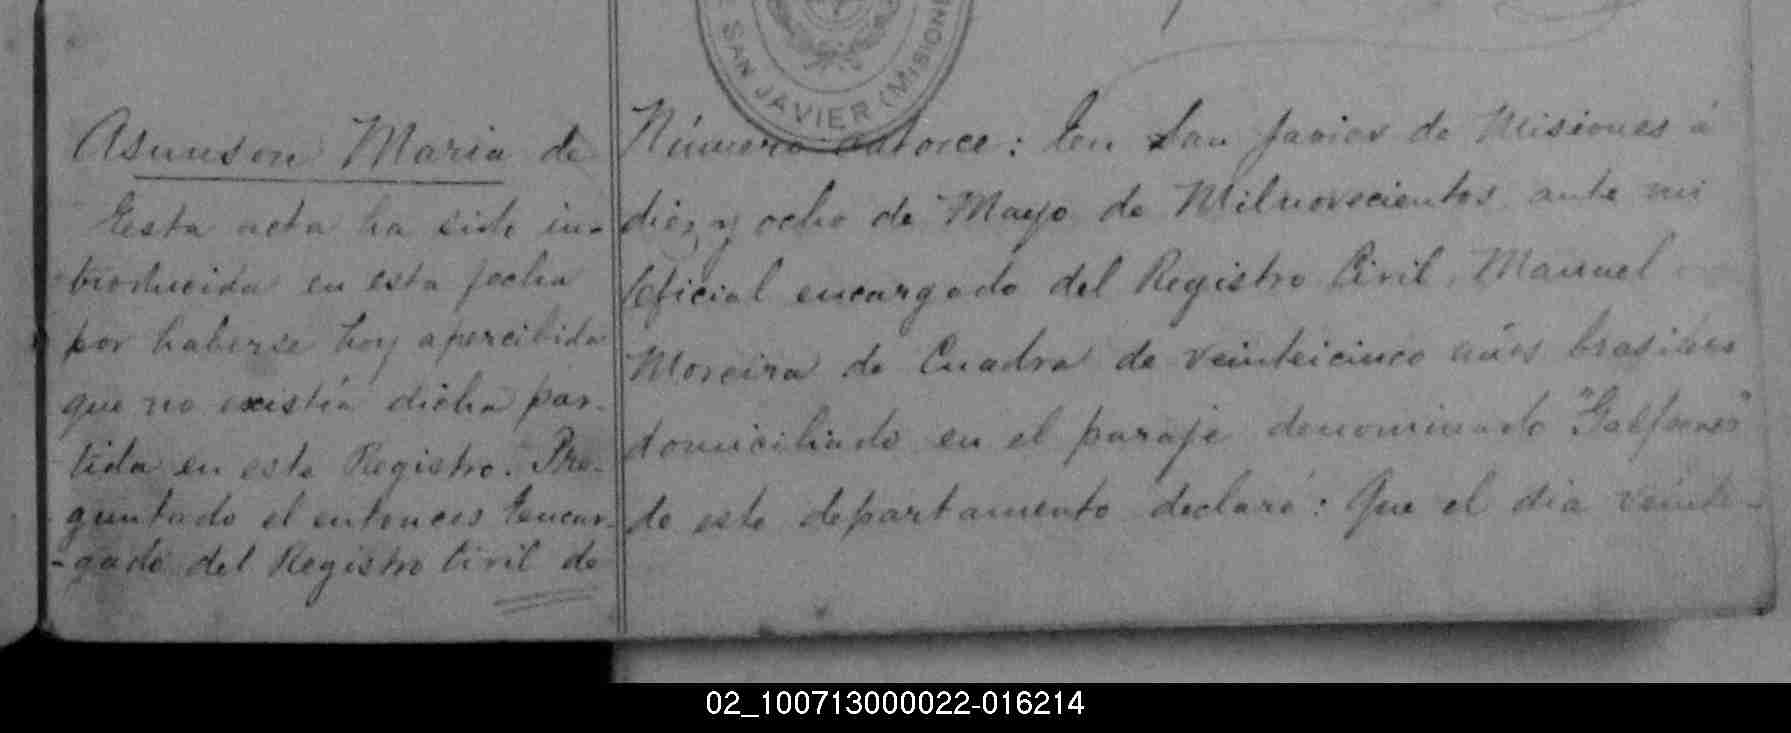 SAN JAVIER (MISIONE
Asunson Maria de
Esta acta ha sido in-
troducida en esta fecha
por haberse hoy apercibido
que no existía dicha par-
tida en este Registro. Pre-
guntado el entonces Encar-
-gado del Registro Civil de
Número catorce: En San Javier de Misiones á
diez y ocho de Mayo de Milnovecientos ante mi
Oficial encargado del Registro Civil, Manuel
Moreira de Cuadra de veinteicinco años brasilero
domiciliado en el paraje denominado
de este departamento declaró: Que el dia veinte-
02_100713000022-016214